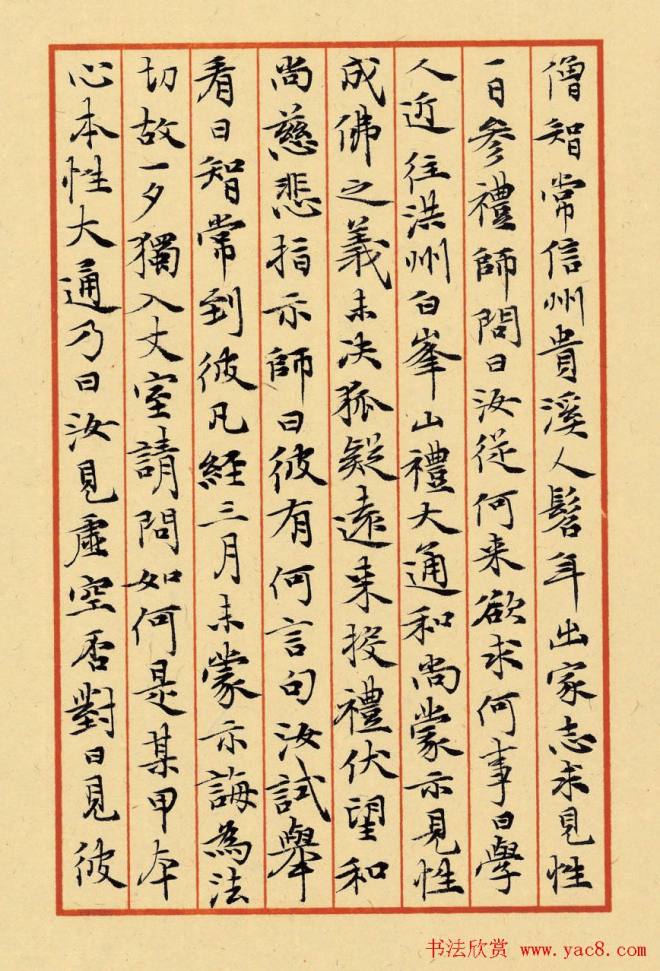 僧智常信州貴溪人髫年出家志求見性
一日參禮師問曰汝從何来欲求何事曰學
人近往洪州白峯山禮大通和尚蒙示見性
成佛之義未决狐疑遠来投禮伏望和
尚慈悲指示師曰彼有何言句汝試舉
看曰智常到彼凡經三月未蒙示誨為法
切故一夕獨入丈室請問如何是某甲本
心本性大通乃曰汝見虛空否對曰見彼
书法欣赏 www.yac8.com